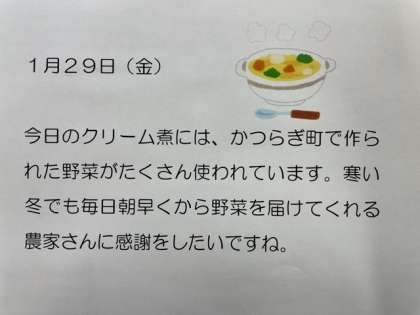 １月２９日（金）
今日のクリーム煮には、かつらぎ町で作ら
れた野菜がたくさん使われています。寒い
冬でも毎日朝早くから野菜を届けてくれる
農家さんに感謝をしたいですね。